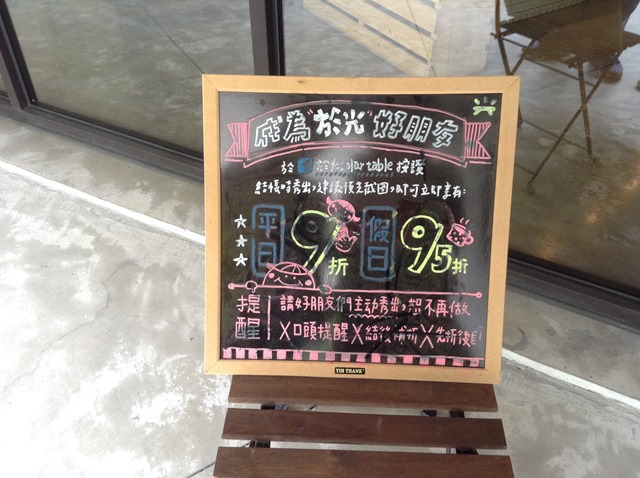 成為"於光"好朋友
於 solar table 按讚
結帳時秀出,建議後主試圖,即可立即享有:
平日 9折 假日 95折
提醒 請好朋友們主动秀出,恕不再做
X口頭提醒 X結後補折 X先折後
YIH THANK